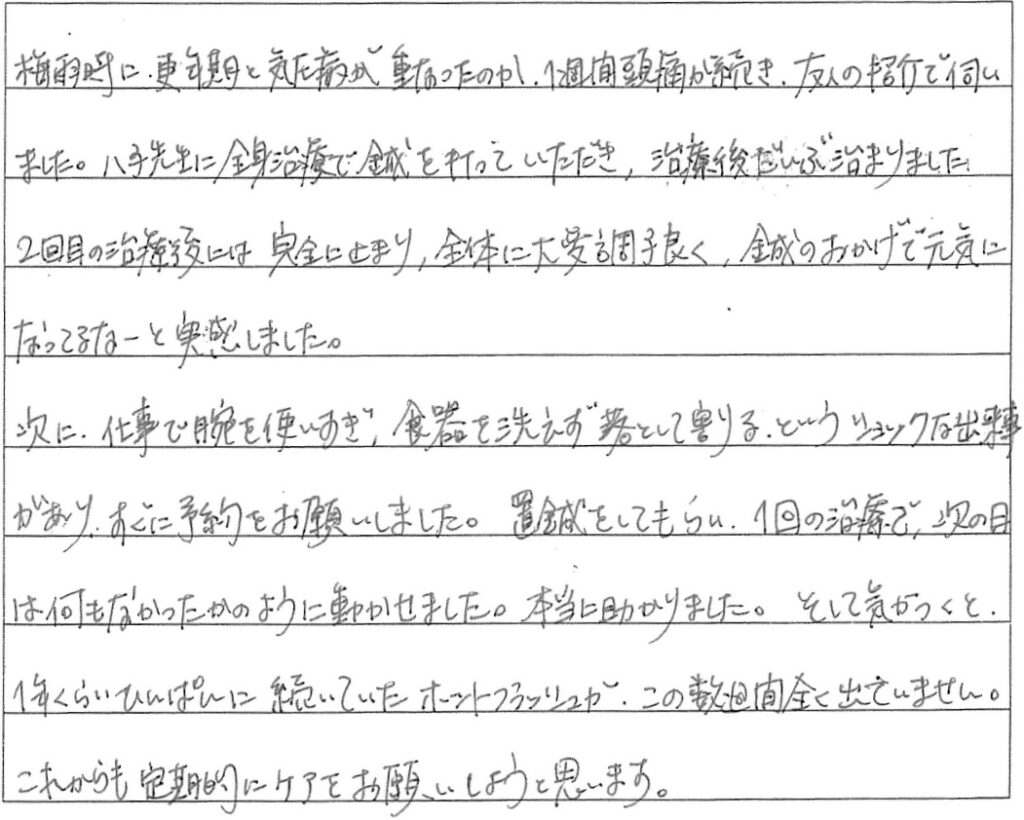 梅雨時に、更年期と気圧病が重なったのか、1週間頭痛が続き、友人の紹介で伺い
ました。八手先生に全身治療で鍼を打っていただき、治療後だいぶ治まりました
2回目の治療後には完全に止まり、全体に大変調子良く、鍼のおかげで元気に
なってるなーと実感しました。
次に、仕事で腕を使いすぎ、食器を洗えず落として割りる、というショックな出来事
があり、すぐに予約をお願いしました。置鍼をしてもらい、1回の治療で、次の日
は何もなかったかのように動かせました。本当に助かりました。そして気がつくと、
1年くらいひんぱんに続いていたホットフラッシュが、この数週間全く出ていません。
これからも定期的にケアをお願いしようと思います。